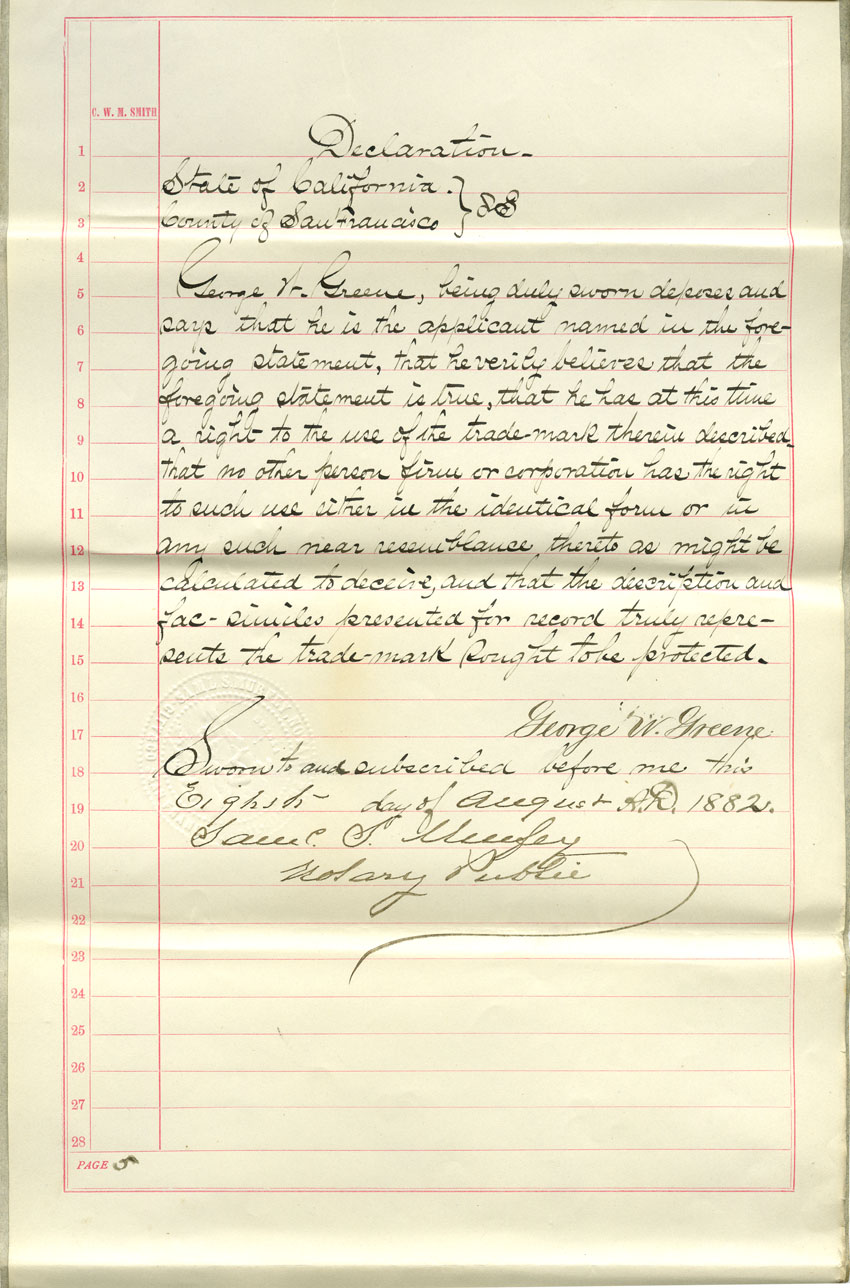 C. W. M. SMITH
1 Declaration -
2 State of California. } SS
3 County of San Francisco
4
5 George W. Greene, being duly sworn deposes and
6 says that he is the applicant named in the fore-
7 going statement, that he verily believes that the
8 foregoing statement is true, that he has at this time
9 a right to the use of the trade-mark therein described,
10 that no other person firm or corporation has the right
11 to such use either in the identical form or in
12 any such near resemblance thereto as might be
13 calculated to deceive, and that the description and
14 fac-similes presented for record truly repre-
15 sents the trade-mark sought to be protected.
16
17 George W. Greene
18 Sworn to and subscribed before me this
19 Eighth day of August A.D. 1882.
20 Saml. S.
21 Notary Public
22
23
24
25
26
27
28
PAGE 5